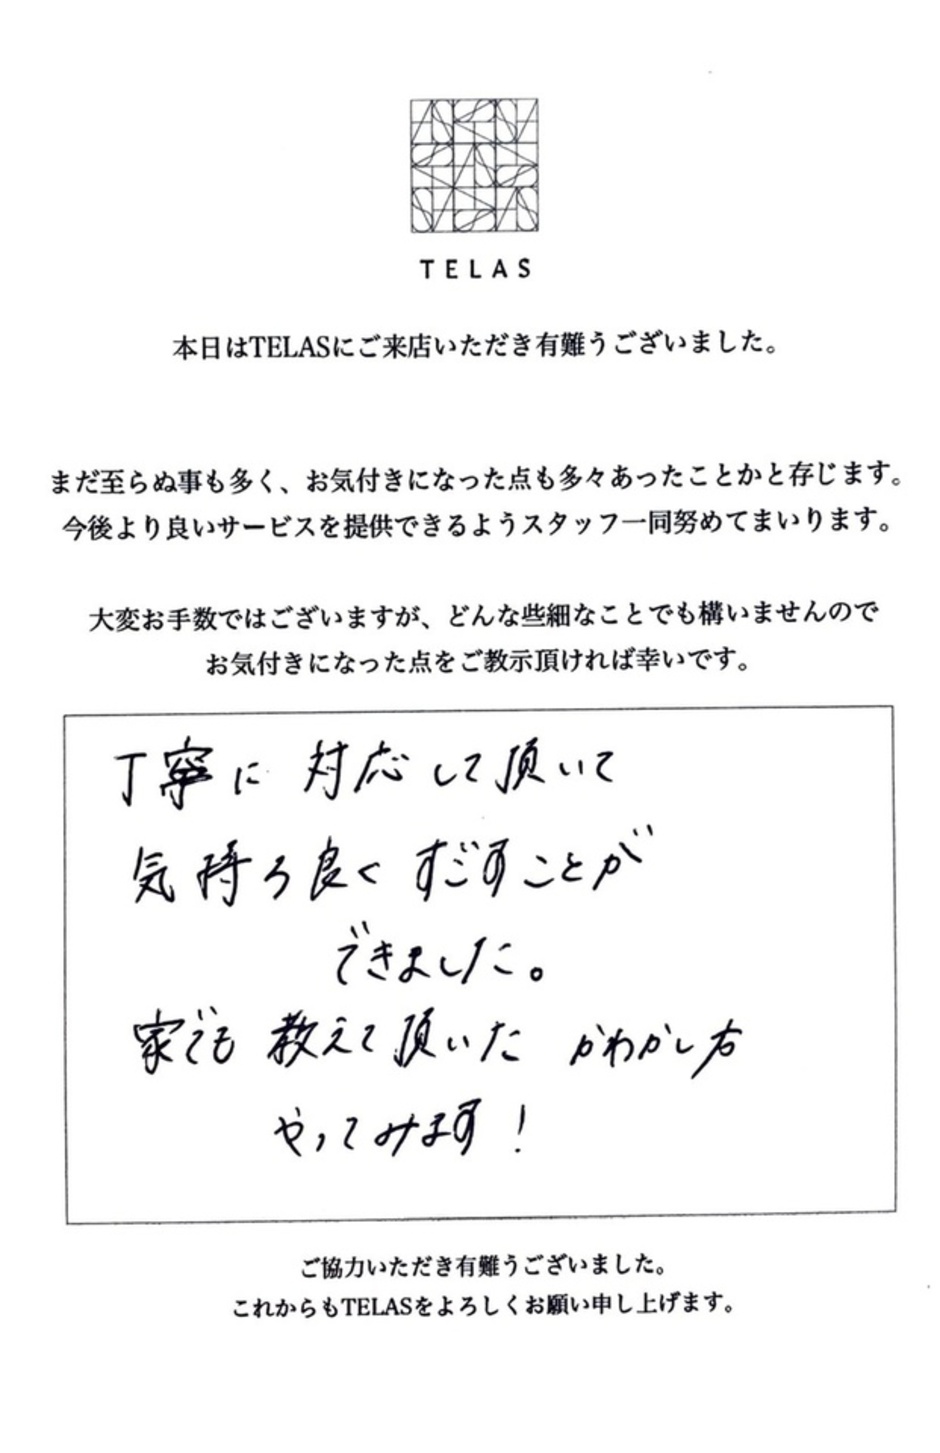 TELAS
本日はTELASにご来店いただき有難うございました。
まだ至らぬ事も多く、お気付きになった点も多々あったことかと存じます。
今後より良いサービスを提供できるようスタッフ一同努めてまいります。
大変お手数ではございますが、どんな些細なことでも構いませんので
お気付きになった点をご教示頂ければ幸いです。
丁寧に 対応して頂いて
気持ち良く すごすことが
できました。
家でも 教えて頂いた かわかし方
やってみます！
ご協力いただき有難うございました。
これからもTELASをよろしくお願い申し上げます。